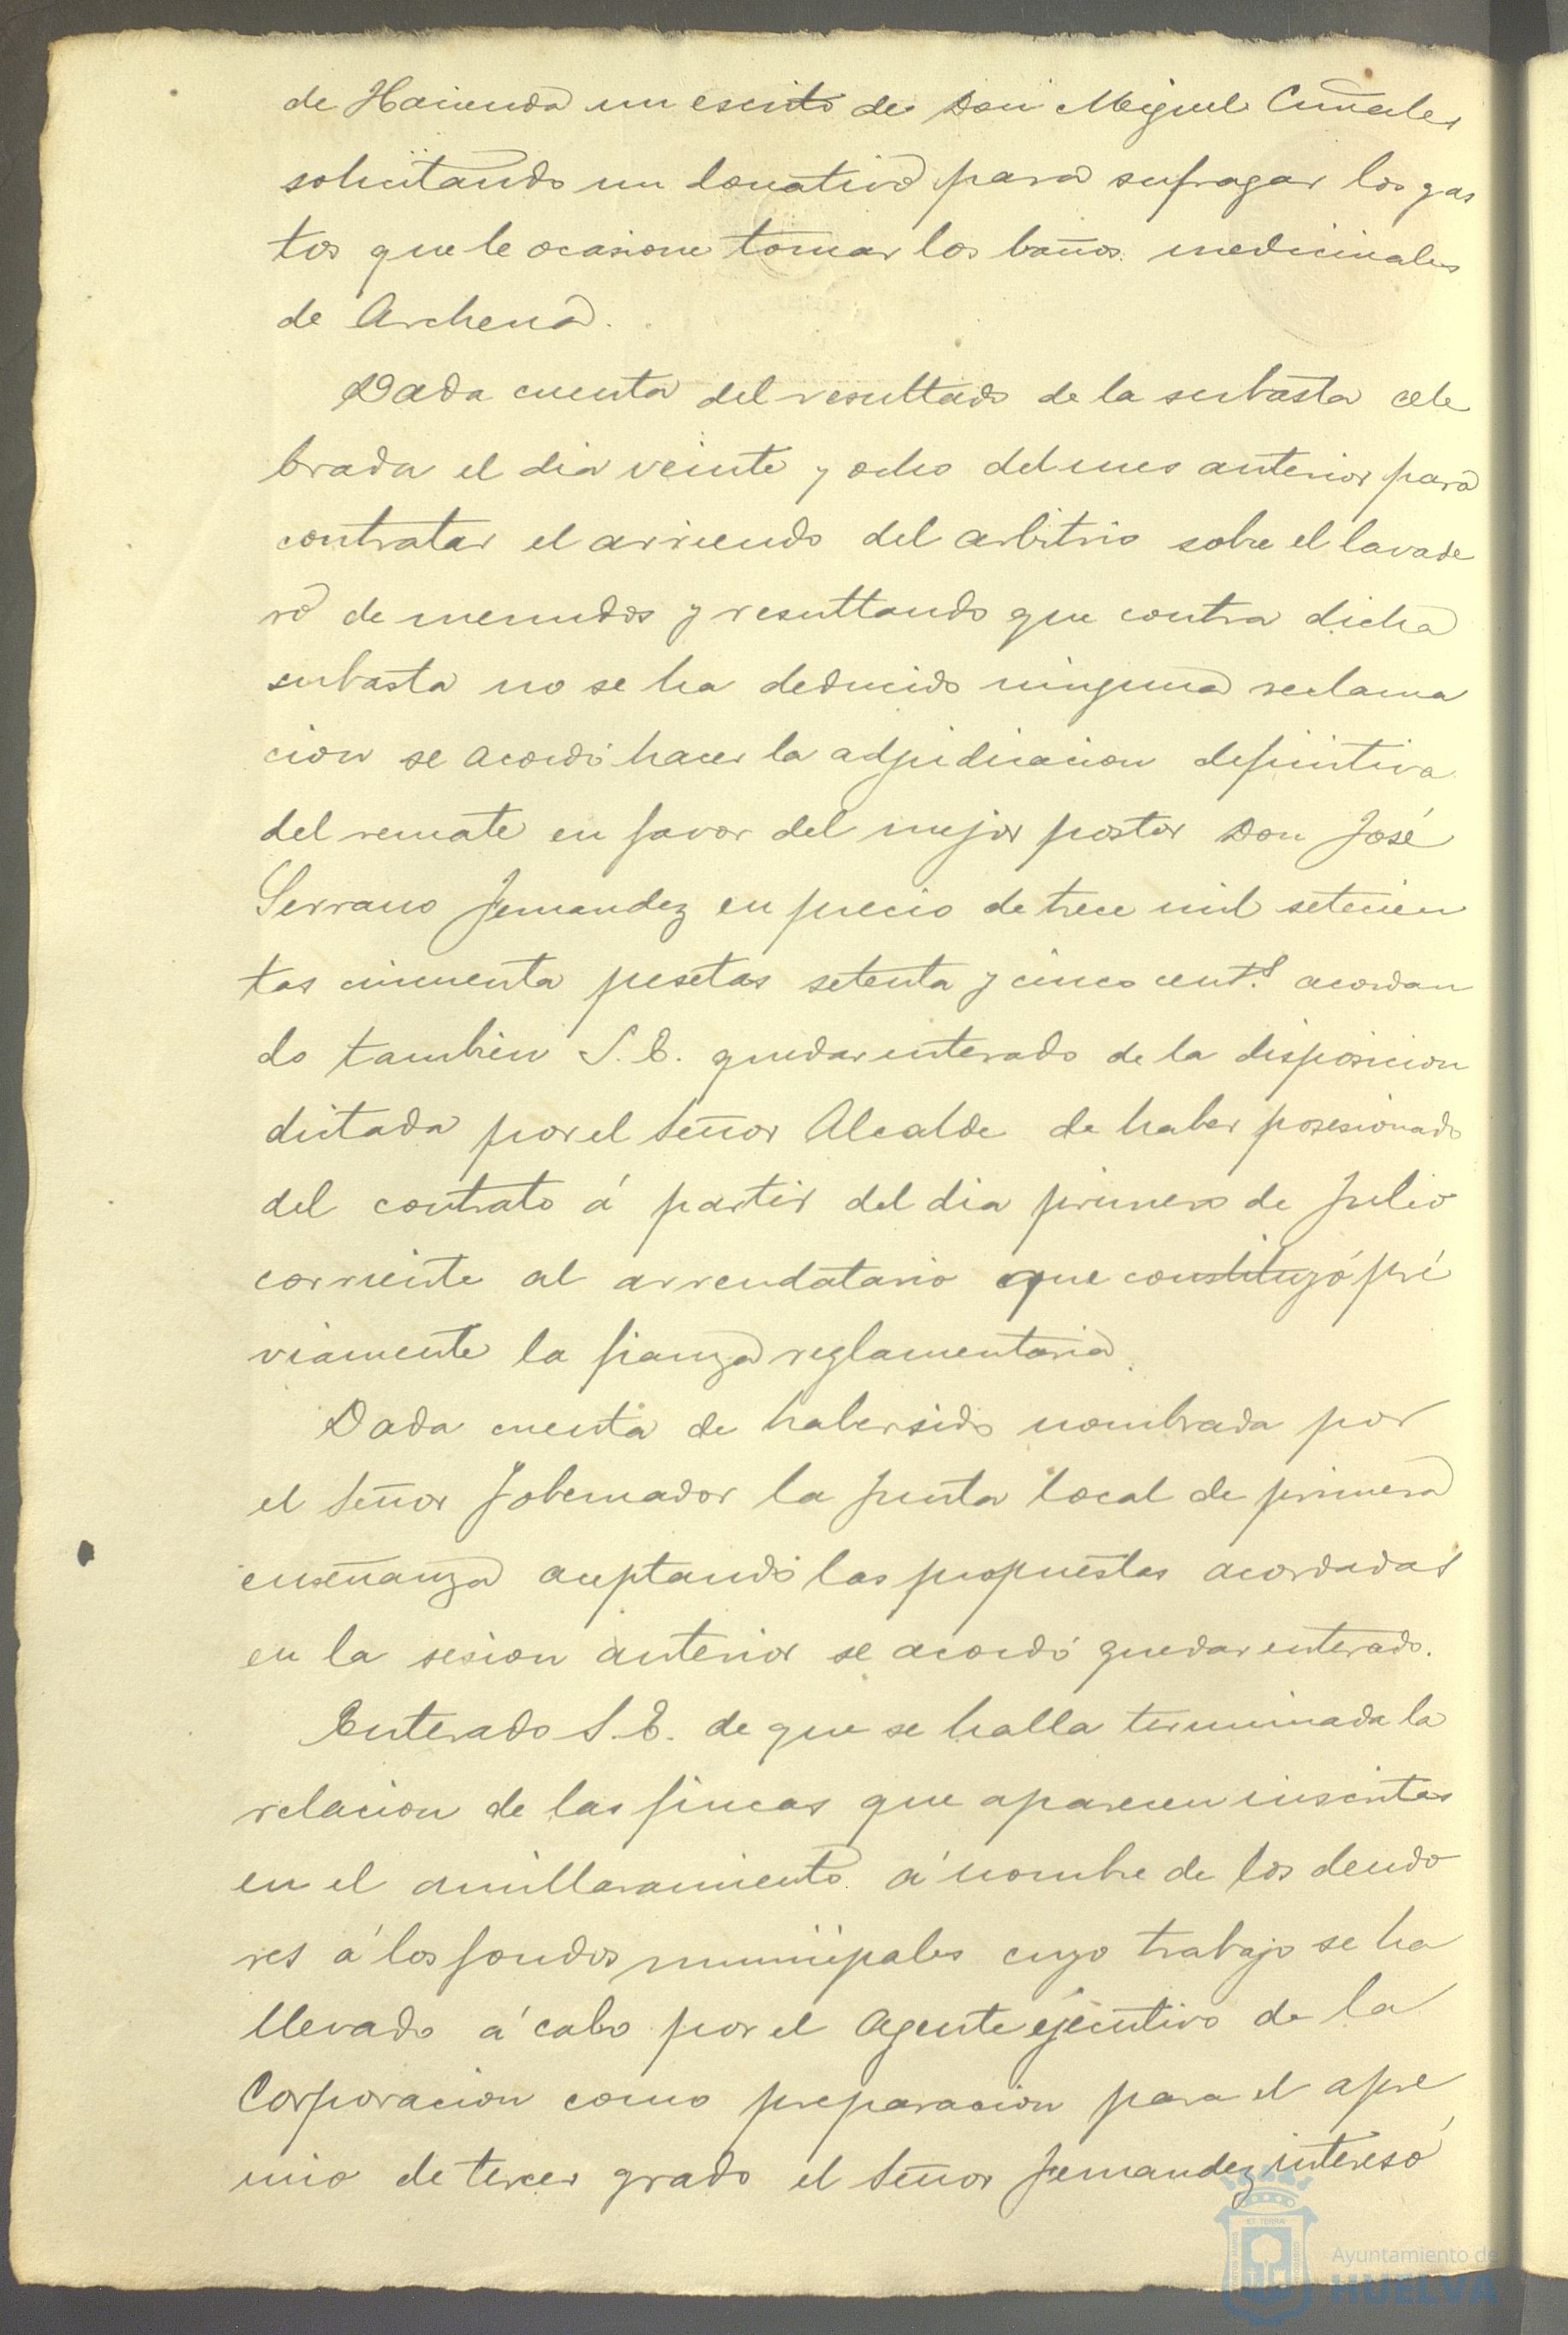 de Hacienda un escrito de Don Miguel
solicitando un donativo para sufragar los gas
tos que le ocasione tomar los baños medicinales
de Archena.
Dada cuenta del resultado de la subasta cele
brada el dia veinte y ocho del mes anterior para
contratar el arriendo del arbitrio sobre el lavade
ro de menudos y resultando que contra dicha
subasta no se ha deducido ninguna reclama
cion se acordó hacer la adjudicacion definitiva
del remate en favor del mejor postor Don José
Serrano Fernandez en precio de trece mil setecien
tas cincuenta pesetas setenta y cinco cent.s acordan
do tambien S. E. quedar enterado de la disposicion
dictada por el Señor Alcalde de haber posesionado
del contrato á partir del dia primero de Julio
corriente al arrendatario que constituyó pré
viamente la fianza reglamentaria.
Dada cuenta de haber sido nombrada por
el Señor Gobernador la Junta local de primera
enseñanza aceptando las propuestas acordadas
en la sesion anterior se acordó quedar enterado.
Enterado S. E. de que se halla terminada la
relacion de las fincas que aparecen inscritas
en el amillaramiento á nombre de los deudo
res á los fondos municipales cuyo trabajo se ha
llevado á cabo por el Agente ejecutivo de la
Corporacion como preparacion para el apre
mio de tercer grado el Señor Fernandez interesó
Ayuntamiento de
HUELVA